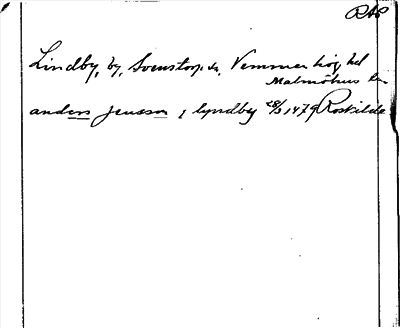 RAP
Lindby, by, Svenstorp sn, Vemmenhög hd
Malmöhus län
anders jensson i lyndby 28/3 1479 Roskilde